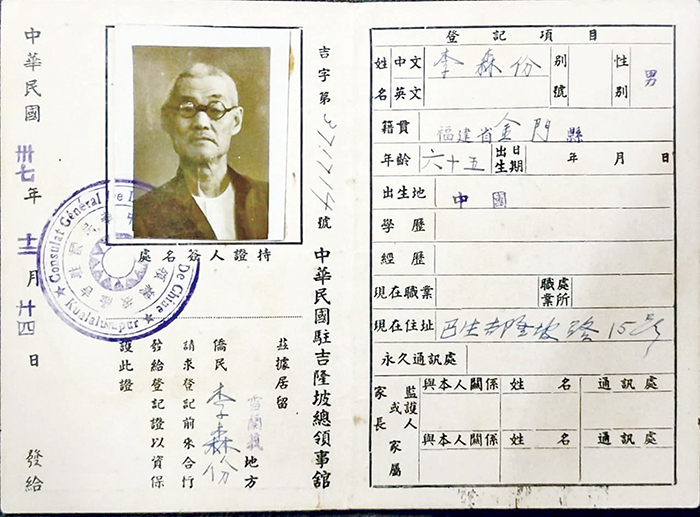 吉字第37714號 中華民國駐吉隆坡總領事舘
持證人簽名處
茲據居留
雪蘭莪地方
僑民李森份
請求登記前來合行
發給登記證以資保
護此證
中華民國卅七年十二月廿四日 發給
Consulat Général De
De Chine
Kualalumpur
登記項目
姓名 中文 李森份 別號 性別 男
英文
籍貫 福建省金門縣
年齡 六十五 出生日期 年 月 日
出生地 中國
學歷
經歷
現在職業 職業處所
現在住址 巴生吉隆坡路15號
永久通訊處
家長或監護人家屬 與本人關係 姓名 通訊處
與本人關係 姓名 通訊處